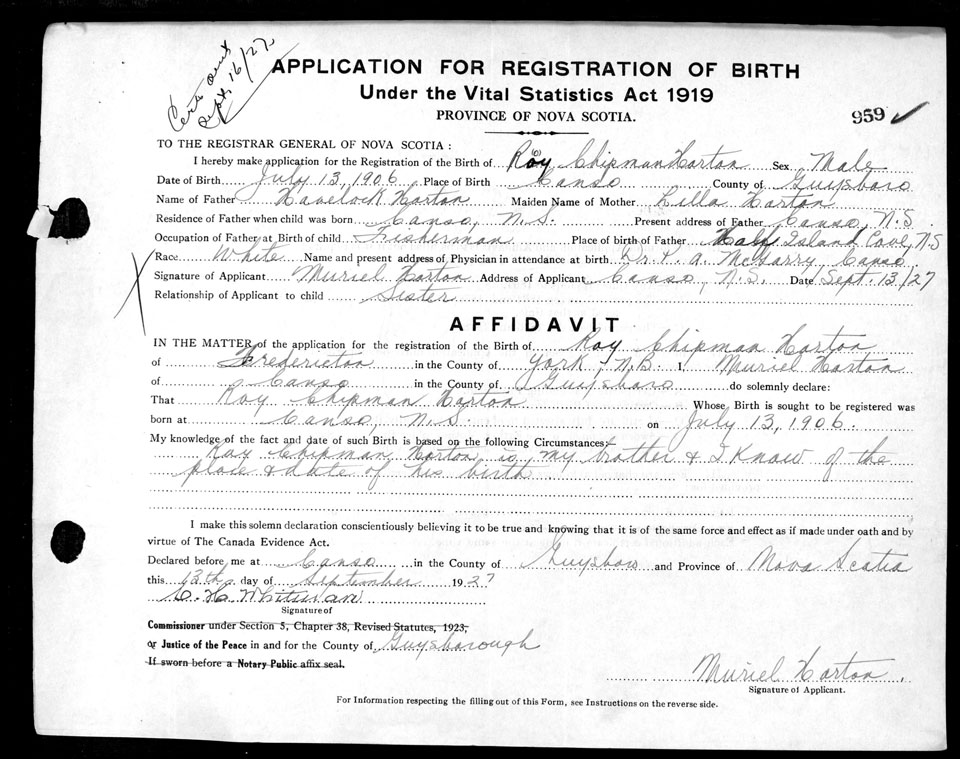 Cert. sent
Sept. 16/27
APPLICATION FOR REGISTRATION OF BIRTH
Under the Vital Statistics Act 1919
PROVINCE OF NOVA SCOTIA.
959
TO THE REGISTRAR GENERAL OF NOVA SCOTIA :
I hereby make application for the Registration of the Birth of Roy (o) Chipman Horton Sex Male
Date of Birth July 13, 1906 Place of Birth Canso County of Guysboro
Name of Father Havelock Horton Maiden Name of Mother Lilla Horton
Residence of Father when child was born Canso, N.S. Present address of Father Canso, N.S
Occupation of Father at Birth of child Fisherman Place of birth of Father Half Island Cove, N.S
Race White Name and present address of Physician in attendance at birth Dr. P. A. McGarry, Canso
Signature of Applicant Muriel Horton Address of Applicant Canso, N.S. Date Sept. 13/27
Relationship of Applicant to child Sister
AFFIDAVIT
IN THE MATTER of the application for the registration of the Birth of Roy Chipman Horton
of Fredericton in the County of York, N.B. I, Muriel Horton
of Canso in the County of Guysboro do solemnly declare:
That Roy Chipman Horton Whose Birth is sought to be registered was
born at Canso, N.S. on July 13, 1906.
My knowledge of the fact and date of such Birth is based on the following Circumstances;—
Roy Chipman Horton is my brother & I know of the
place & date of his birth
I make this solemn declaration conscientiously believing it to be true and knowing that it is of the same force and effect as if made under oath and by
virtue of The Canada Evidence Act.
Declared before me at Canso in the County of Guysboro and Province of Nova Scotia
this 13th day of September 1927
C. H. Whitman
Signature of
Commissioner under Section 5, Chapter 38, Revised Statutes, 1923,
or Justice of the Peace in and for the County of Guysborough
If sworn before a Notary Public affix seal.
Muriel Horton.
Signature of Applicant.
For Information respecting the filling out of this Form, see Instructions on the reverse side.